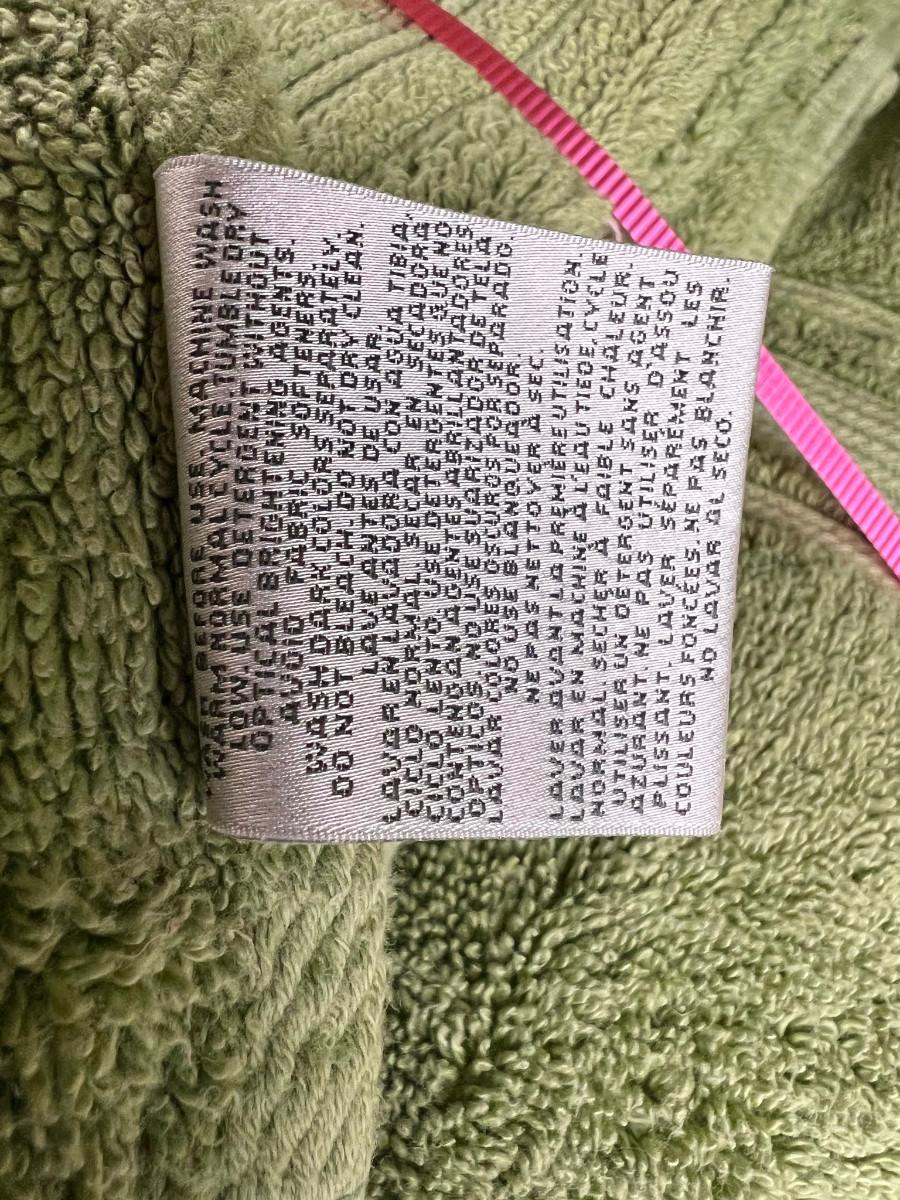 WASH BEFORE USE. MACHINE WASH
WARM NORMAL CYCLE.TUMBLE DRY
LOW. USE DETERGENT WITHOUT
OPTICAL BRIGHTENING AGENTS.
AVOID FABRIC SOFTENERS.
WASH DARK COLORS SEPARATELY.
DO NOT BLEACH. DO NOT DRY CLEAN.
LAVE ANTES DE USAR.
LAVAR EN LAVADORA CON AGUA TIBIA,
CICLO NORMAL. SECAR EN SECADORA,
CICLO LENTO. USE DETERGENTES QUE NO
CONTENGAN AGENTES ABRILLANTADORES
OPTICOS. NO USE SUAVIZADOR DE TELA.
LAVAR COLORES OSCUROS POR SEPARADO.
NO USE BLANQUEADOR.
NE PAS NETTOYER À SEC.
LAVER AVANT LA PREMIÈRE UTILISATION.
LAVAR EN MACHINE À L'EAU TIEDE, CYCLE
NORMAL. SECHER À FAIBLE CHALEUR.
UTILISER UN DETERGENT SANS AGENT
AZURANT. NE PAS UTILISER D'ASSOU
PLISSANT. LAVER SEPARÉMENT LES
COULEURS FONCÉES. NE PAS BLANCHIR.
NO LAVAR AL SECO.